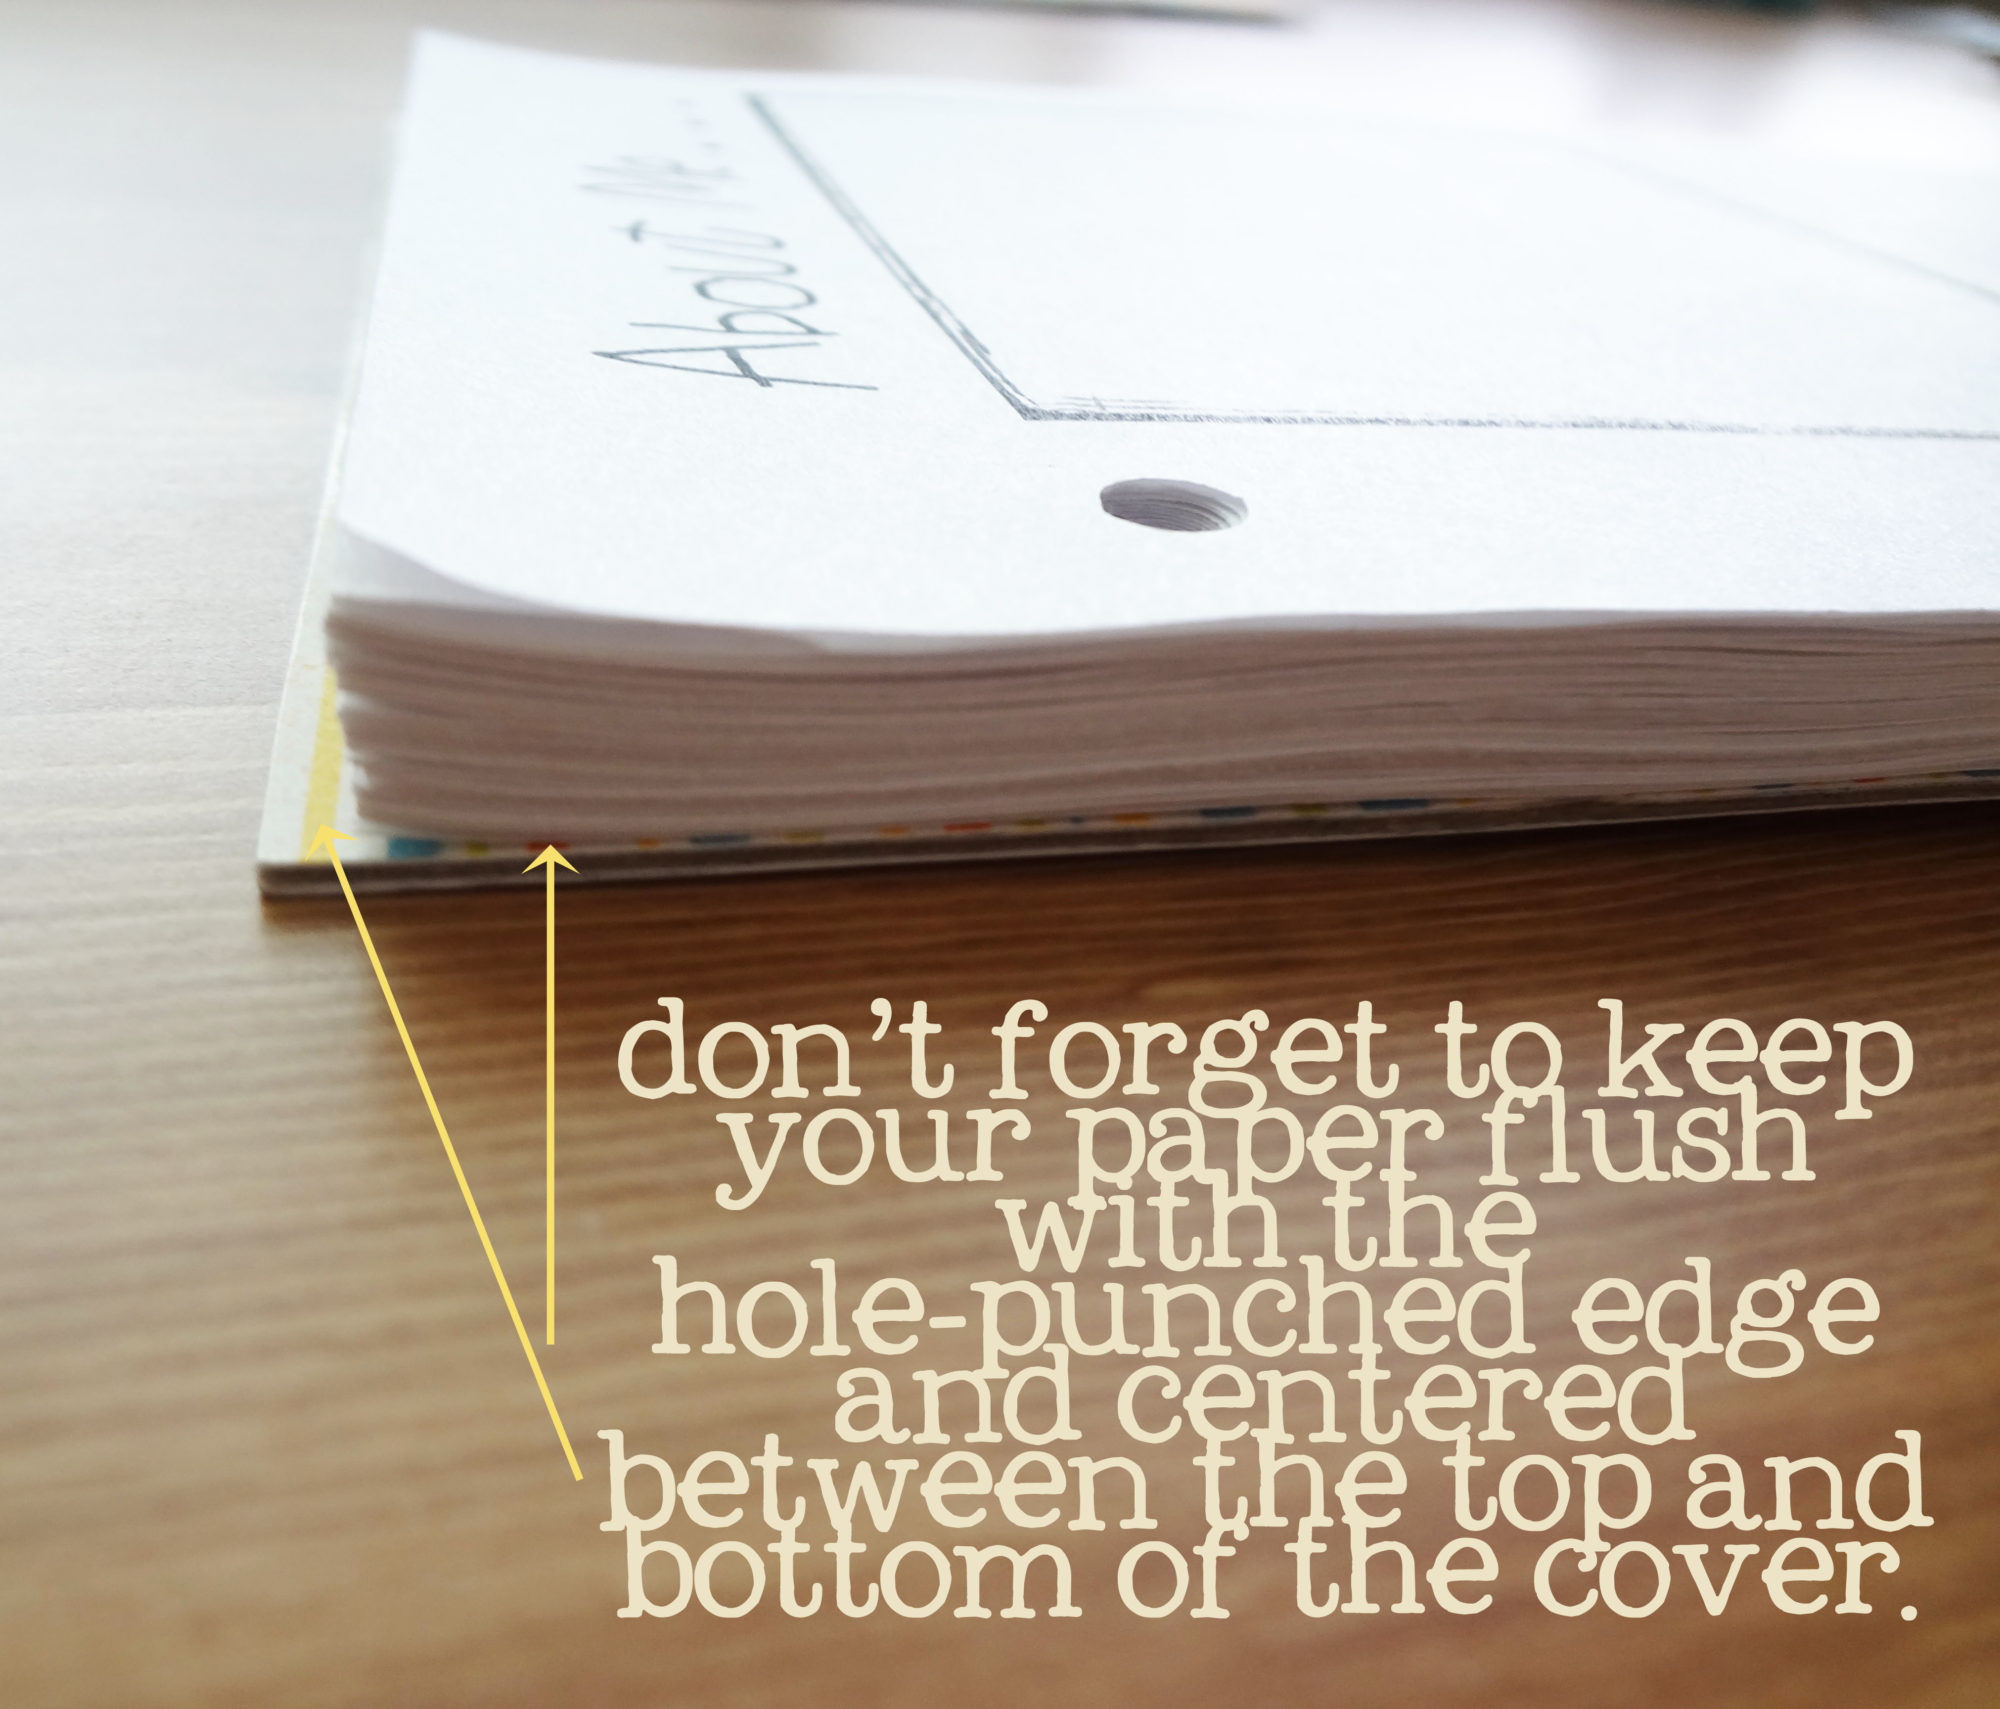 About Me...
don't forget to keep
your paper flush
with the
hole-punched edge
and centered
between the top and
bottom of the cover.